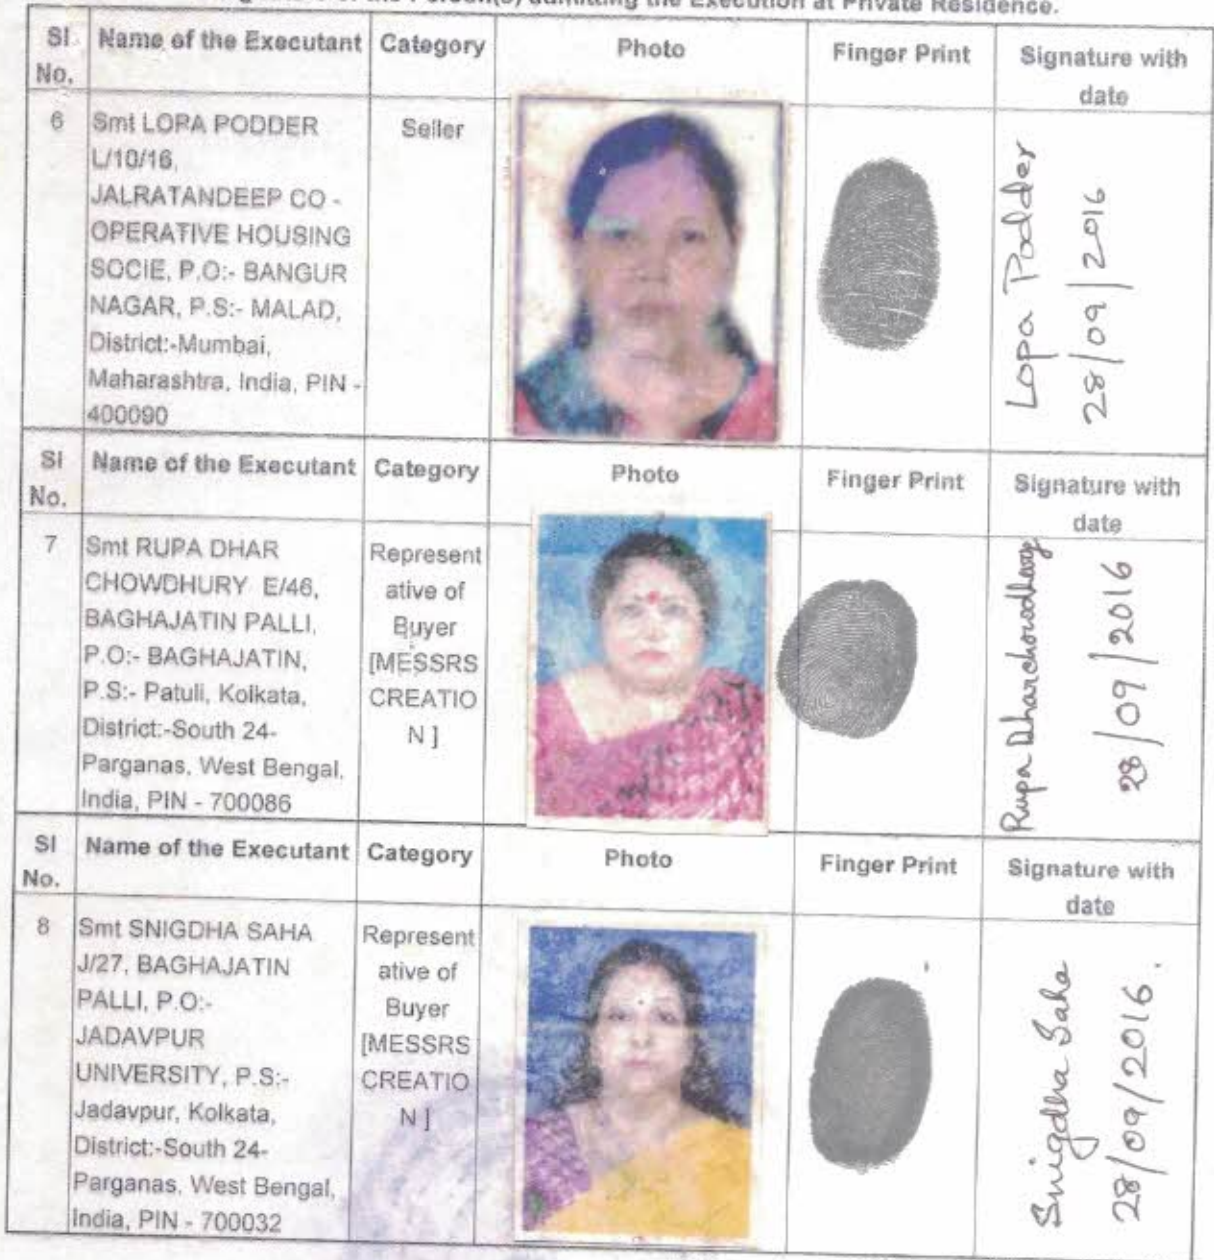 the Person(s) admitting the Execution at Private Residence.
Sl No. Name of the Executant Category Photo Finger Print Signature with date
6 Smt LORA PODDER Seller
L/10/16,
JALRATANDEEP CO -
OPERATIVE HOUSING
SOCIE, P.O:- BANGUR
NAGAR, P.S:- MALAD,
District:-Mumbai,
Maharashtra, India, PIN -
400090
Lopa Podder
28/09/2016
Sl No. Name of the Executant Category Photo Finger Print Signature with date
7 Smt RUPA DHAR
CHOWDHURY E/46,
BAGHAJATIN PALLI,
P.O:- BAGHAJATIN,
P.S:- Patuli, Kolkata,
District:-South 24-
Parganas, West Bengal,
India, PIN - 700086
Represent
ative of
Buyer
[MESSRS
CREATIO
N ]
Rupa Dharchowdhury
28/09/2016
Sl No. Name of the Executant Category Photo Finger Print Signature with date
8 Smt SNIGDHA SAHA
J/27, BAGHAJATIN
PALLI, P.O:-
JADAVPUR
UNIVERSITY, P.S:-
Jadavpur, Kolkata,
District:-South 24-
Parganas, West Bengal,
India, PIN - 700032
Represent
ative of
Buyer
[MESSRS
CREATIO
N ]
Snigdha Saha
28/09/2016.